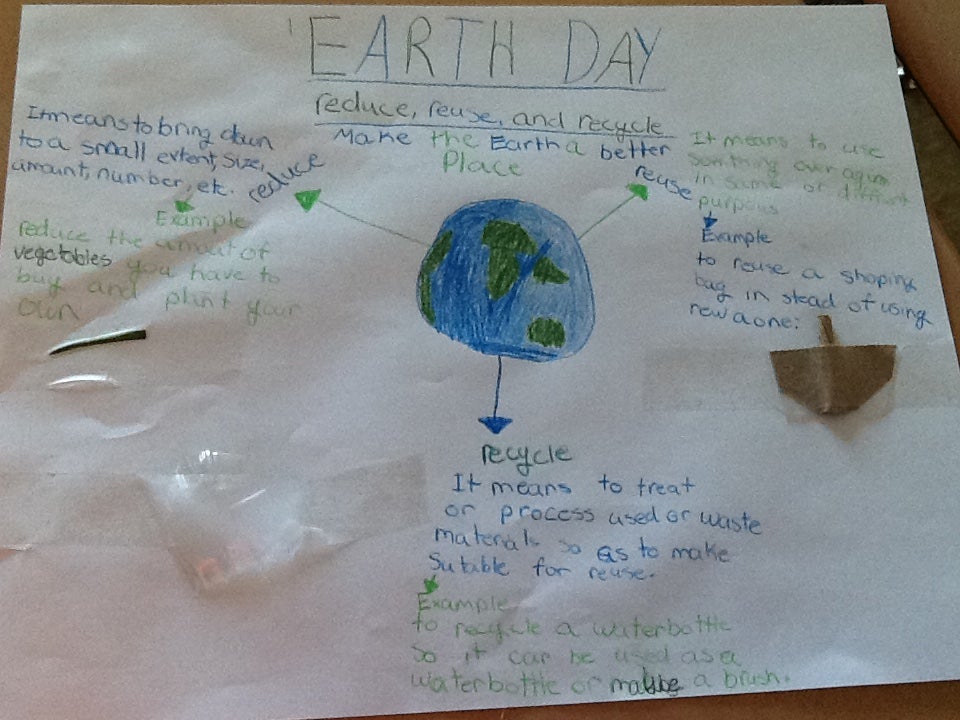 EARTH DAY
reduce, reuse, and recycle
Make the Earth a better
Place
reduce
It means to bring down
to a small extent, size,
amount, number, etc.
Example
reduce the amount of
vegetables you have to
buy and plant your
own
reuse
It means to use
somthing over again
in same or diffrent
purpous
Example
to reuse a shoping
bag in stead of using
new a one.
recycle
It means to treat
or process used or waste
materials so as to make
Sutable for reuse.
Example
to recycle a waterbottle
so it can be used as a
waterbottle or a brush.